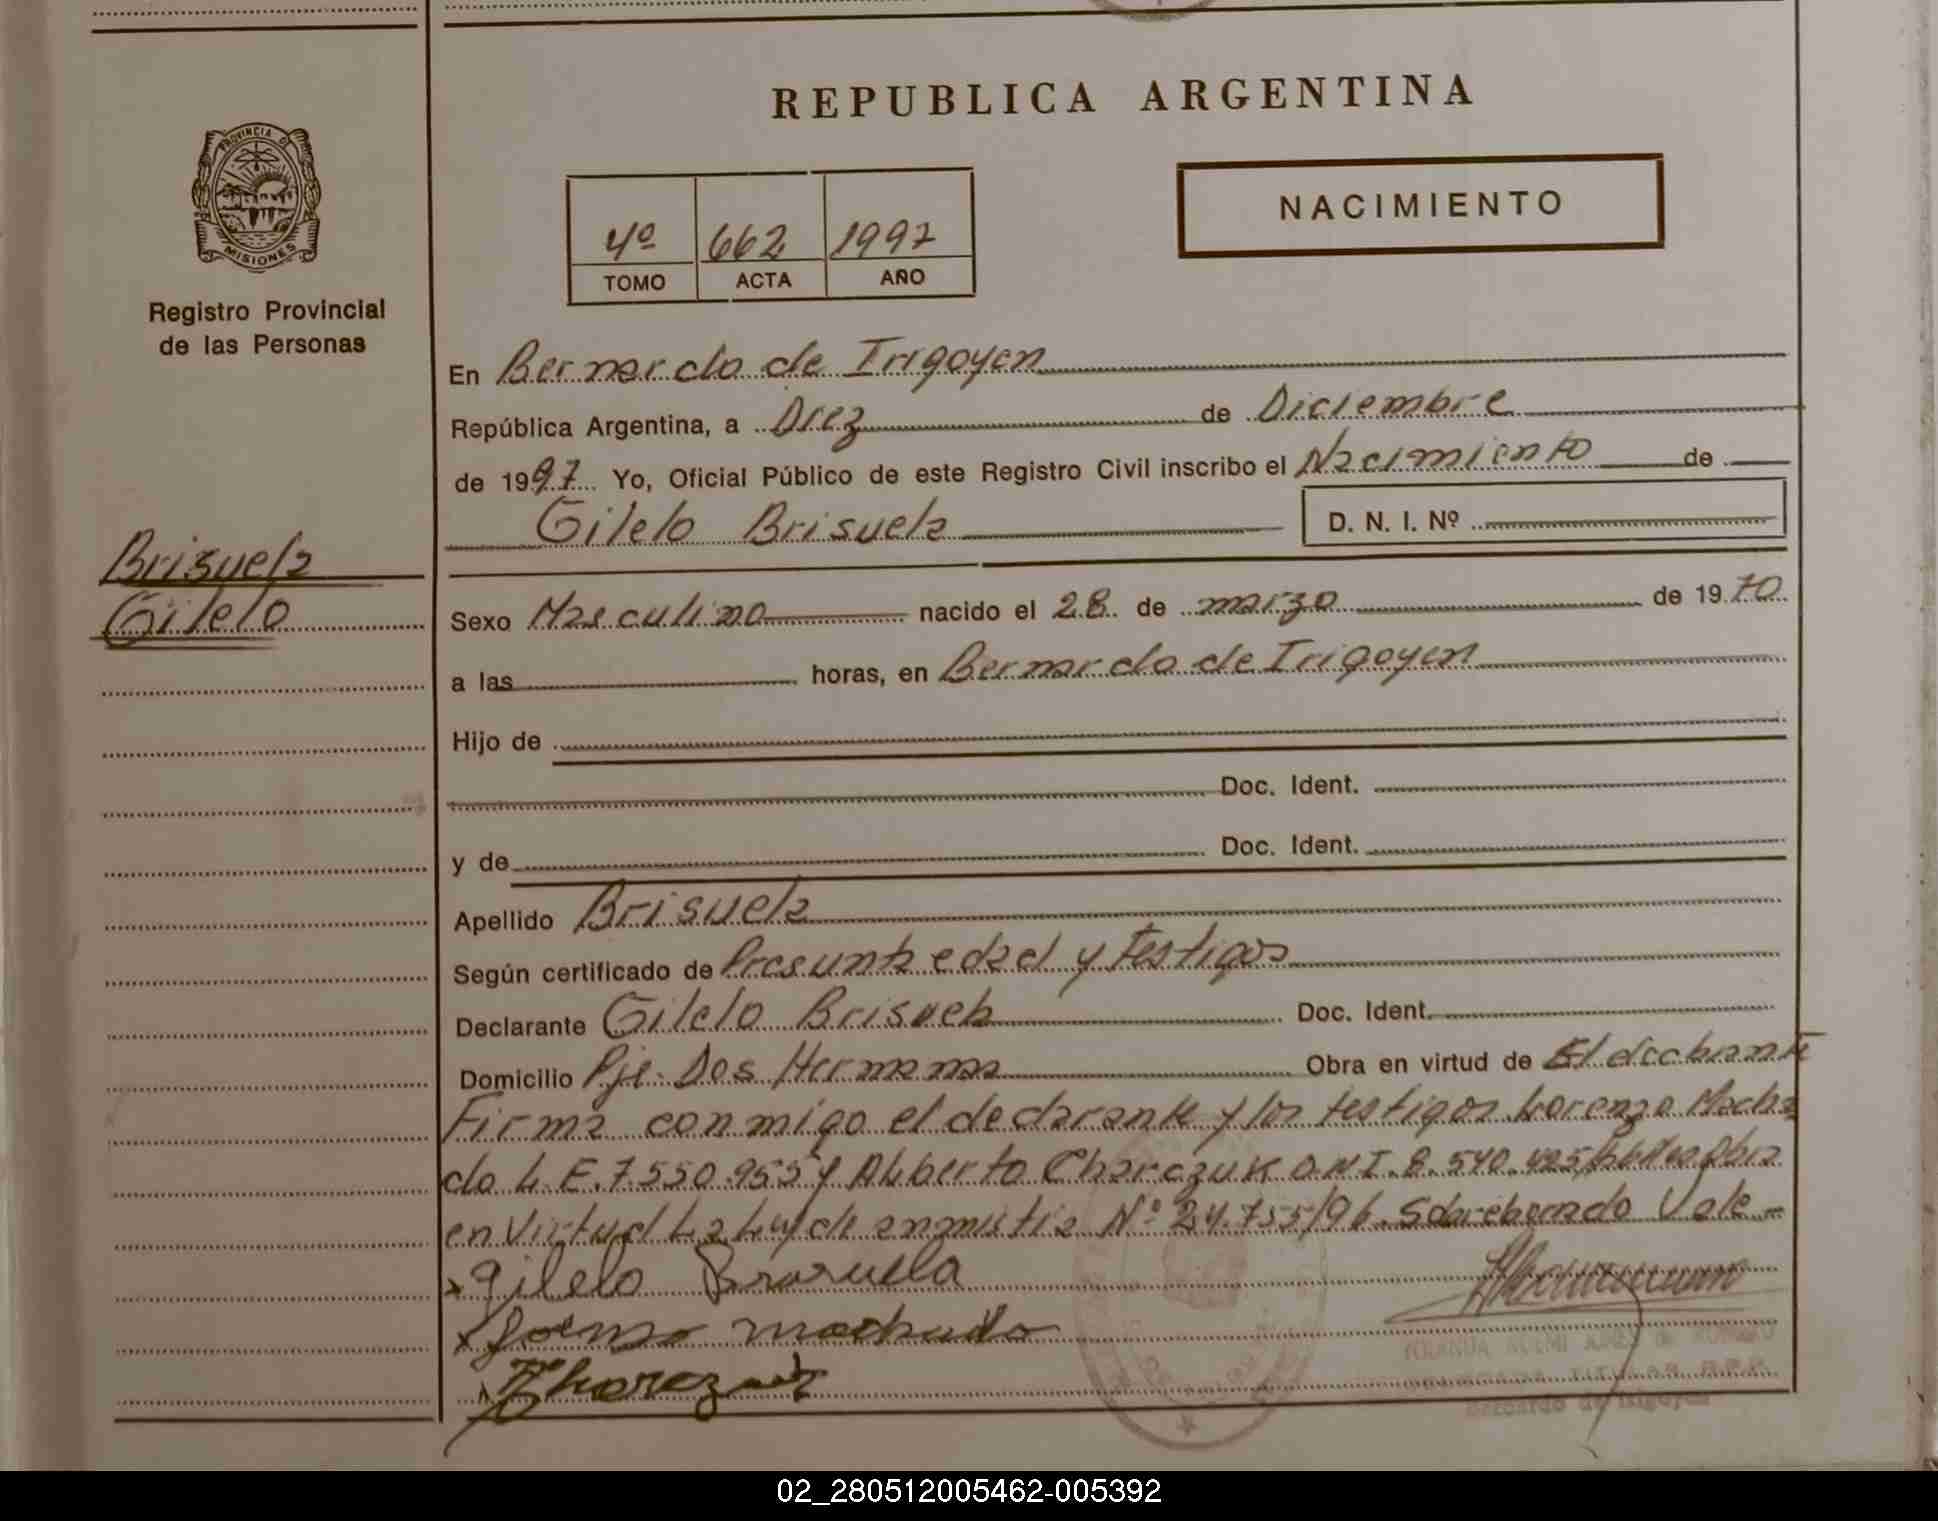 REPUBLICA ARGENTINA
PROVINCIA DE
MISIONES
Registro Provincial
de las Personas
NACIMIENTO
4º 662 1997
TOMO ACTA AÑO
En Bernardo de Irigoyen
República Argentina, a Diez de Diciembre
de 1997 Yo, Oficial Público de este Registro Civil inscribo el Nacimiento de
Gilelo Brisuela
D. N. I. Nº
Brisuela
Gilelo
Sexo Masculino nacido el 28 de marzo de 1970
a las horas, en Bernardo de Irigoyen
Hijo de
Doc. Ident.
y de Doc. Ident.
Apellido Brisuela
Según certificado de Presunta edad y Testigos
Declarante Gilelo Brisuela Doc. Ident.
Domicilio Pje. Dos Hermanas Obra en virtud de El declarante
Firma conmigo el declarante y los testigos Lorenzo Macha
do L.E. 7.550.955 y Aliberto Charczuk D.N.I. 8.540.425 Obra
en Virtud La Ley de amnistia Nº 24.755/96. Sobreborrado Vale-
x Gilelo Brasuela
x machado
Bernardo de Irigoyen
02_280512005462-005392